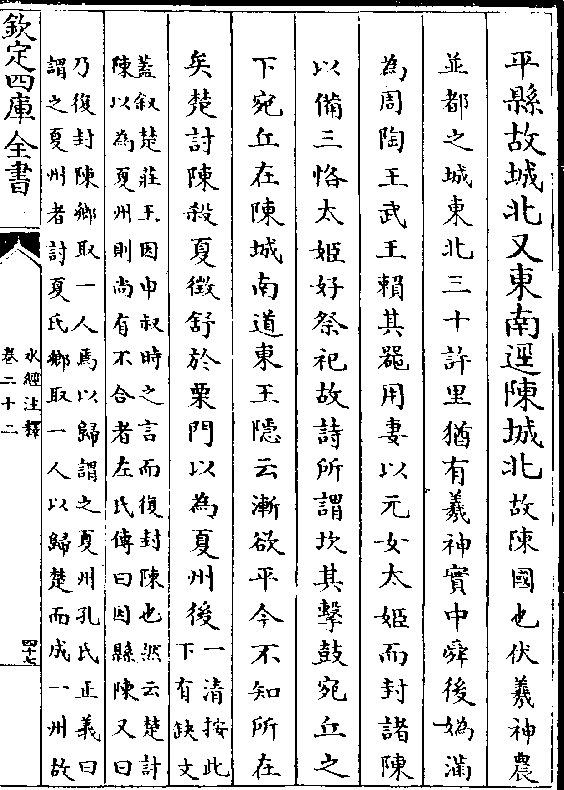 平縣故城北又東南逕陳城北故陳國也伏羲神農
並都之城東北三十許里猶有羲神實中舜後媯滿
為周陶王武王賴其器用妻以元女太姬而封諸陳
以備三恪太姬好祭祀故詩所謂坎其擊鼓宛丘之
下宛丘在陳城南道東王隱云漸欲平今不知所在
矣楚討陳殺夏徵舒於栗門以為夏州後一清按此
下有缺文
蓋叙楚莊王因申叔時之言而復封陳也然云楚討
陳以為夏州則尚有不合者左氏傳曰因縣陳又曰
乃復封陳鄉取一人焉以歸謂之夏州孔氏正義曰
謂之夏州者討夏氏鄉取一人以歸楚而成一州故
欽定四庫全書
水經注釋
卷二十二
四十七